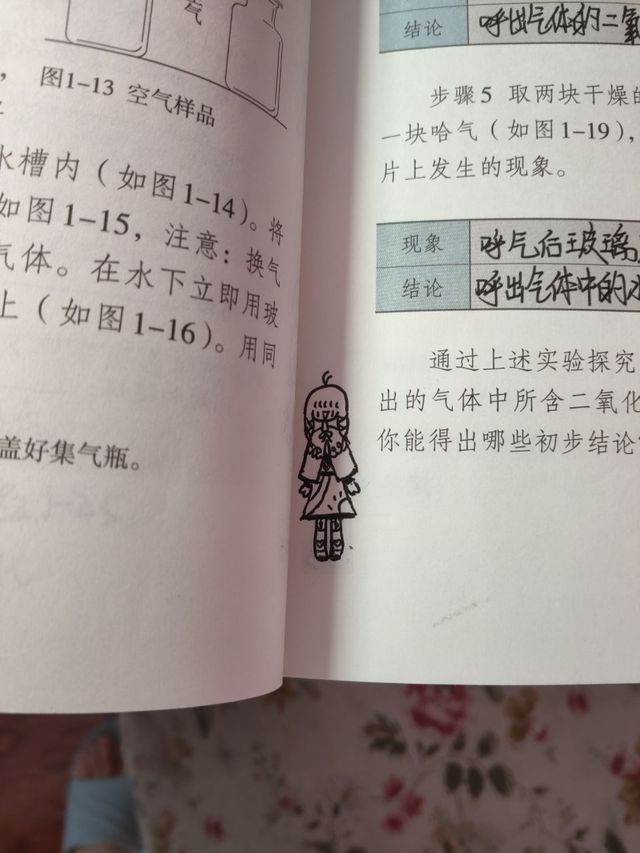 气
图1-13 空气样品
水槽内（如图1-14）。将
如图1-15，注意：换气
气体。在水下立即用玻
上（如图1-16）。用同
盖好集气瓶。
结论 呼出气体的二氧
步骤5 取两块干燥的
一块哈气（如图1-19），
片上发生的现象。
现象 呼气后玻璃
结论 呼出气体中的水
通过上述实验探究
出的气体中所含二氧化
你能得出哪些初步结论